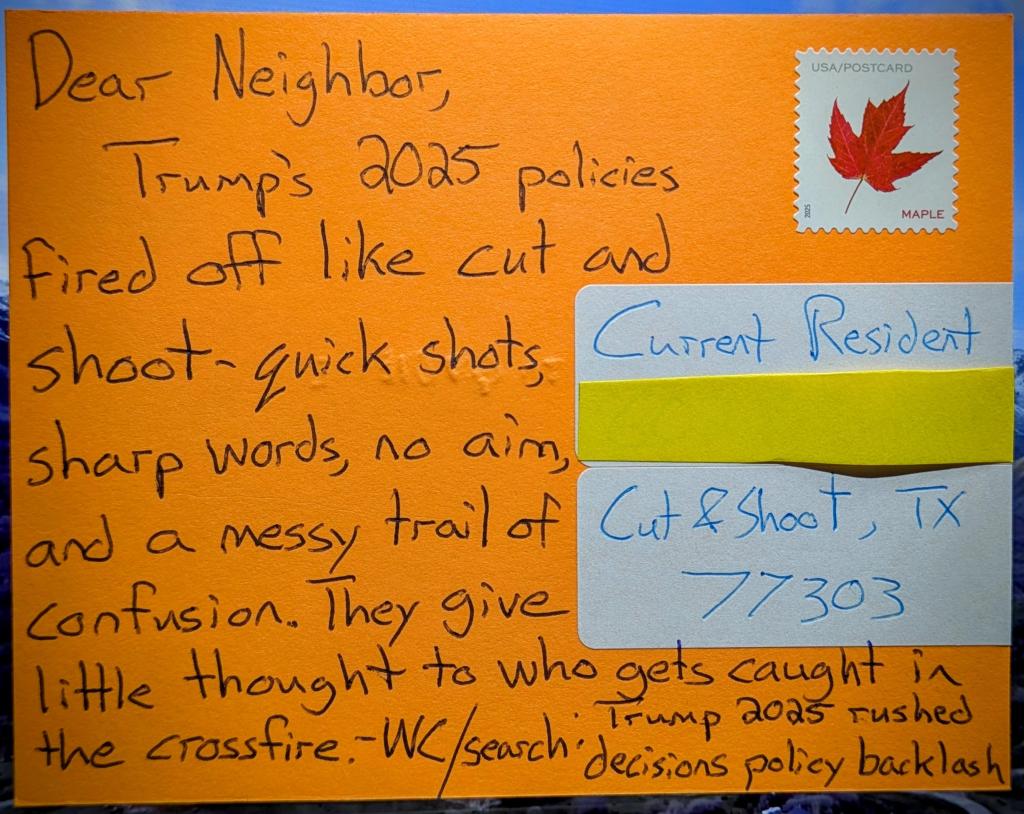 Dear Neighbor,
Trump's 2025 policies
fired off like cut and
shoot-quick shots,
sharp words, no aim,
and a messy trail of
confusion. They give
little thought to who gets caught in
the crossfire.-WC/search: Trump 2025 rushed
decisions policy backlash
USA/POSTCARD
2025
MAPLE
Current Resident
Cut & Shoot, TX
77303